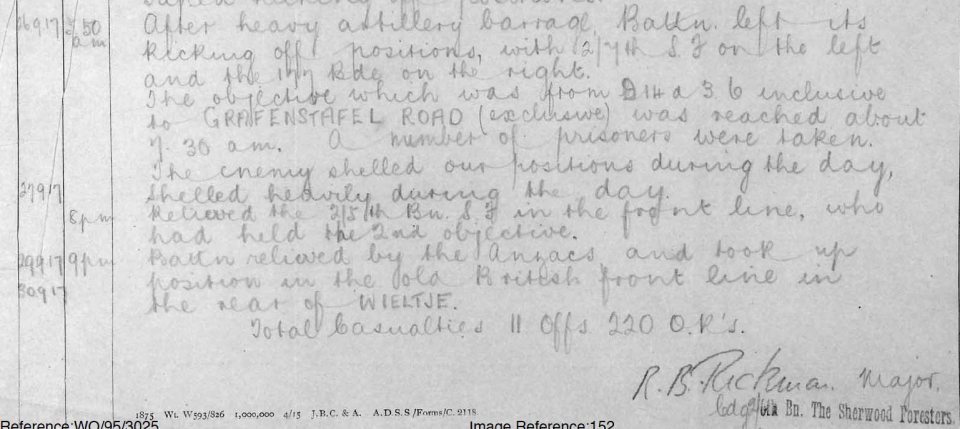 26917 5.50 After heavy artillery barrage, Battn. left its
am kicking off positions, with 2/7th S.F on the left
and the 177 Bde on the right.
The objective which was from D14 a 3.6 inclusive
to GRAFENSTAFEL ROAD (exclusive) was reached about
7.30 am. A number of prisoners were taken.
The enemy shelled our positions during the day,
27917 shelled heavily during the day.
8pm Relieved the 2/5th Bn. S.F in the front line, who
had held the 2nd objective.
29917 9pm Battn relieved by the Anzacs and took up
30917 position in the old British front line in
the rear of WIELTJE.
Total Casualties 11 Offs 220 O.R's.
R.B. Rickman. Major.
Cdg 2/6th Bn. The Sherwood Foresters.
1875 Wt. W593/826 1,000,000 4/15 J.B.C. & A. A.D.S.S/Forms/C. 2118
Reference:WO/95/3025 Image Reference:152